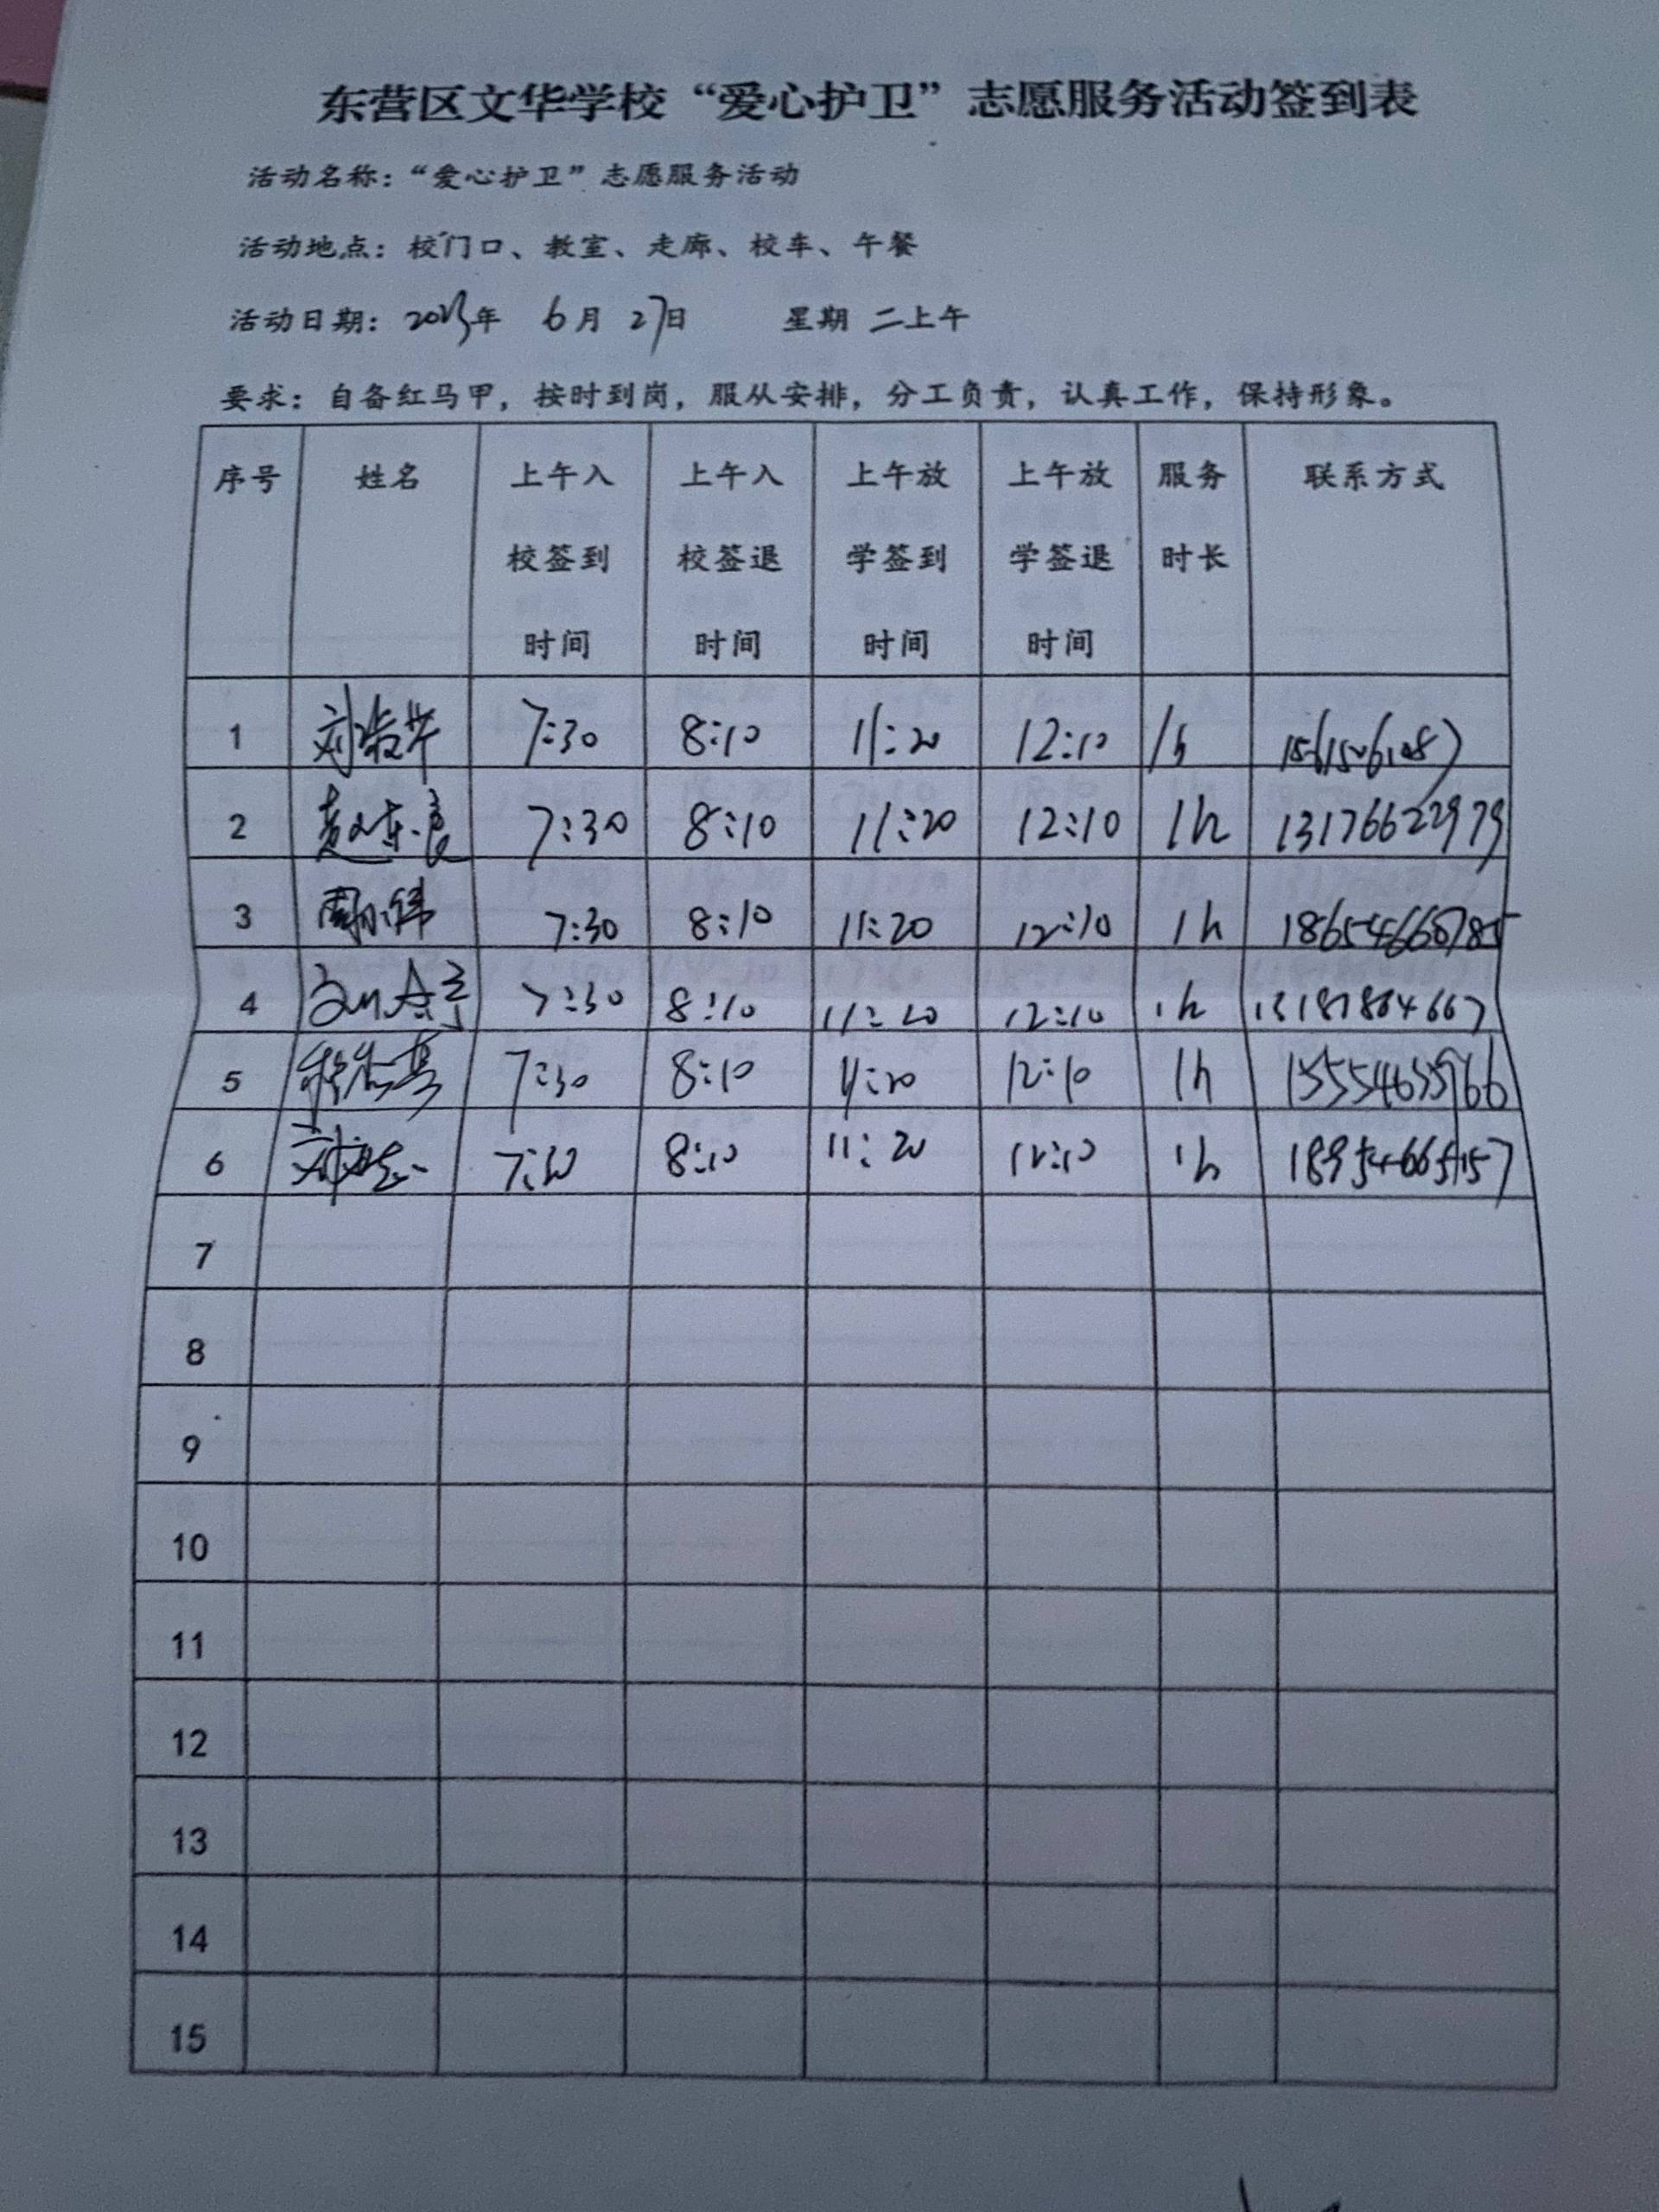 东营区文华学校“爱心护卫”志愿服务活动签到表
活动名称：“爱心护卫”志愿服务活动
活动地点：校门口、教室、走廊、校车、午餐
活动日期：2023年 6月 27日 星期 二上午
要求：自备红马甲，按时到岗，服从安排，分工负责，认真工作，保持形象。
序号 姓名 上午入校签到时间 上午入校签退时间 上午放学签到时间 上午放学签退时间 服务时长 联系方式
1 7:30 8:10 11:20 12:10 1h
2 7:30 8:10 11:20 12:10 1h 13176622979
3 7:30 8:10 11:20 12:10 1h
4 7:30 8:10 11:20 12:10 1h 13181884667
5 7:30 8:10 11:20 12:10 1h
6 7:30 8:10 11:20 12:10 1h 18954665157
7
8
9
10
11
12
13
14
15